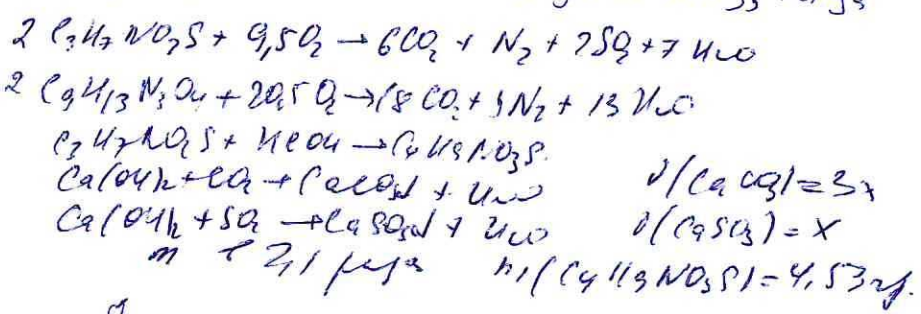 2 C3H7NO2S + 9,5O2 → 6CO2 + N2 + 2SO2 + 7 H2O
2 C9H13N3O4 + 20,5O2 → 18 CO2 + 3N2 + 13 H2O
C3H7NO2S + HCOH → C4H9NO3S
Ca(OH)2 + CO2 → CaCO3↓ + H2O ϑ(CaCO3) = 3x
Ca(OH)2 + SO2 → CaSO3↓ + H2O ϑ(CaSO3) = x
m в 2,1 раза m1(C4H9NO3S) = 4,53 гр.